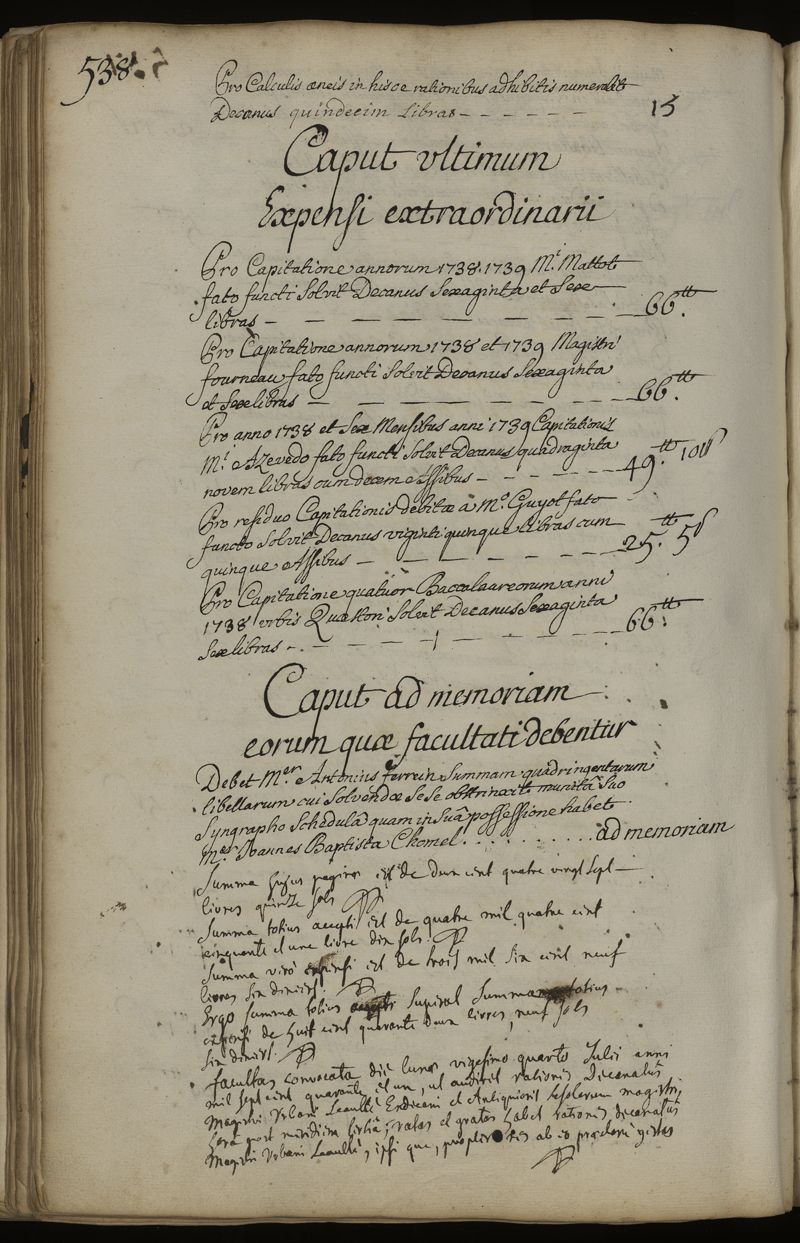 538.
Pro Calculis æneis in hisce rationibus adhibitis numeravit
Decanus quindecim libras - - - - - - 15
Caput ultimum
Expensi extraordinarii
Pro Capitatione annorum 1738. 1739 M.i Mattot
fato functi Solvit Decanus Sexaginta et Sex
libras - - - - - - - 66.tt
Pro Capitatione annorum 1738 et 1739 Magistri
fourneau fato functi Solvit Decanus Sexaginta
et Sex libras - - - - - - 66.tt
Pro anno 1738 et Sex Mensibus anni 1739 Capitationis
M.i Azevedo fato functi Solvit Decanus quadraginta
novem libras cum decem Assibus - - - - 49.tt 10ſ
Pro residuo Capitationis debitæ a M.o Guyot fato
functo Solvit Decanus viginti quinque libras cum
quinque Assibus - - - - - - 25.tt 5ſ
Pro Capitatione quatuor Baccalaureorum anni
1738 urbis Quæstori Solvit Decanus Sexaginta
Sex libras - - - - - - - 66.tt
Caput ad memoriam
eorum quæ facultati debentur
Debet M.er Antonius ferrein Summam quadringentarum
libellarum cui Solvendæ Sese obstrinxit munitâ Suo
Syngrapho Schedulâ quam in Suâ possessione habet
M.er Joannes Baptista Chomel . . . . . . . . . . . ad memoriam
Summa hujus paginæ est de deux cent quatre vingt Sept
livres quinze sols
Summa totius accepti est de quatre mil quatre cent
cinquante et une livre dix sols.
Summa vero expensi est de trois mil six cent neuf
livres six deniers.
Ergo Summa totius accepti superat Summam totius
expensi de huit cent quarante deux livres, neuf sols
six deniers.
facultas convocata die lunæ vigesimo quarto Julii anni
mil sept cent quarante et un, ut audiret rationes Decanatûs
Magistri Urbani Leaulté Exdecani et Antiquioris scholarum magistri,
horâ post meridiem tertiâ, ratas et gratas habet rationes decanatûs
Magistri Urbani Leaulté, ipsi que, propter res ab eo præclare gestas